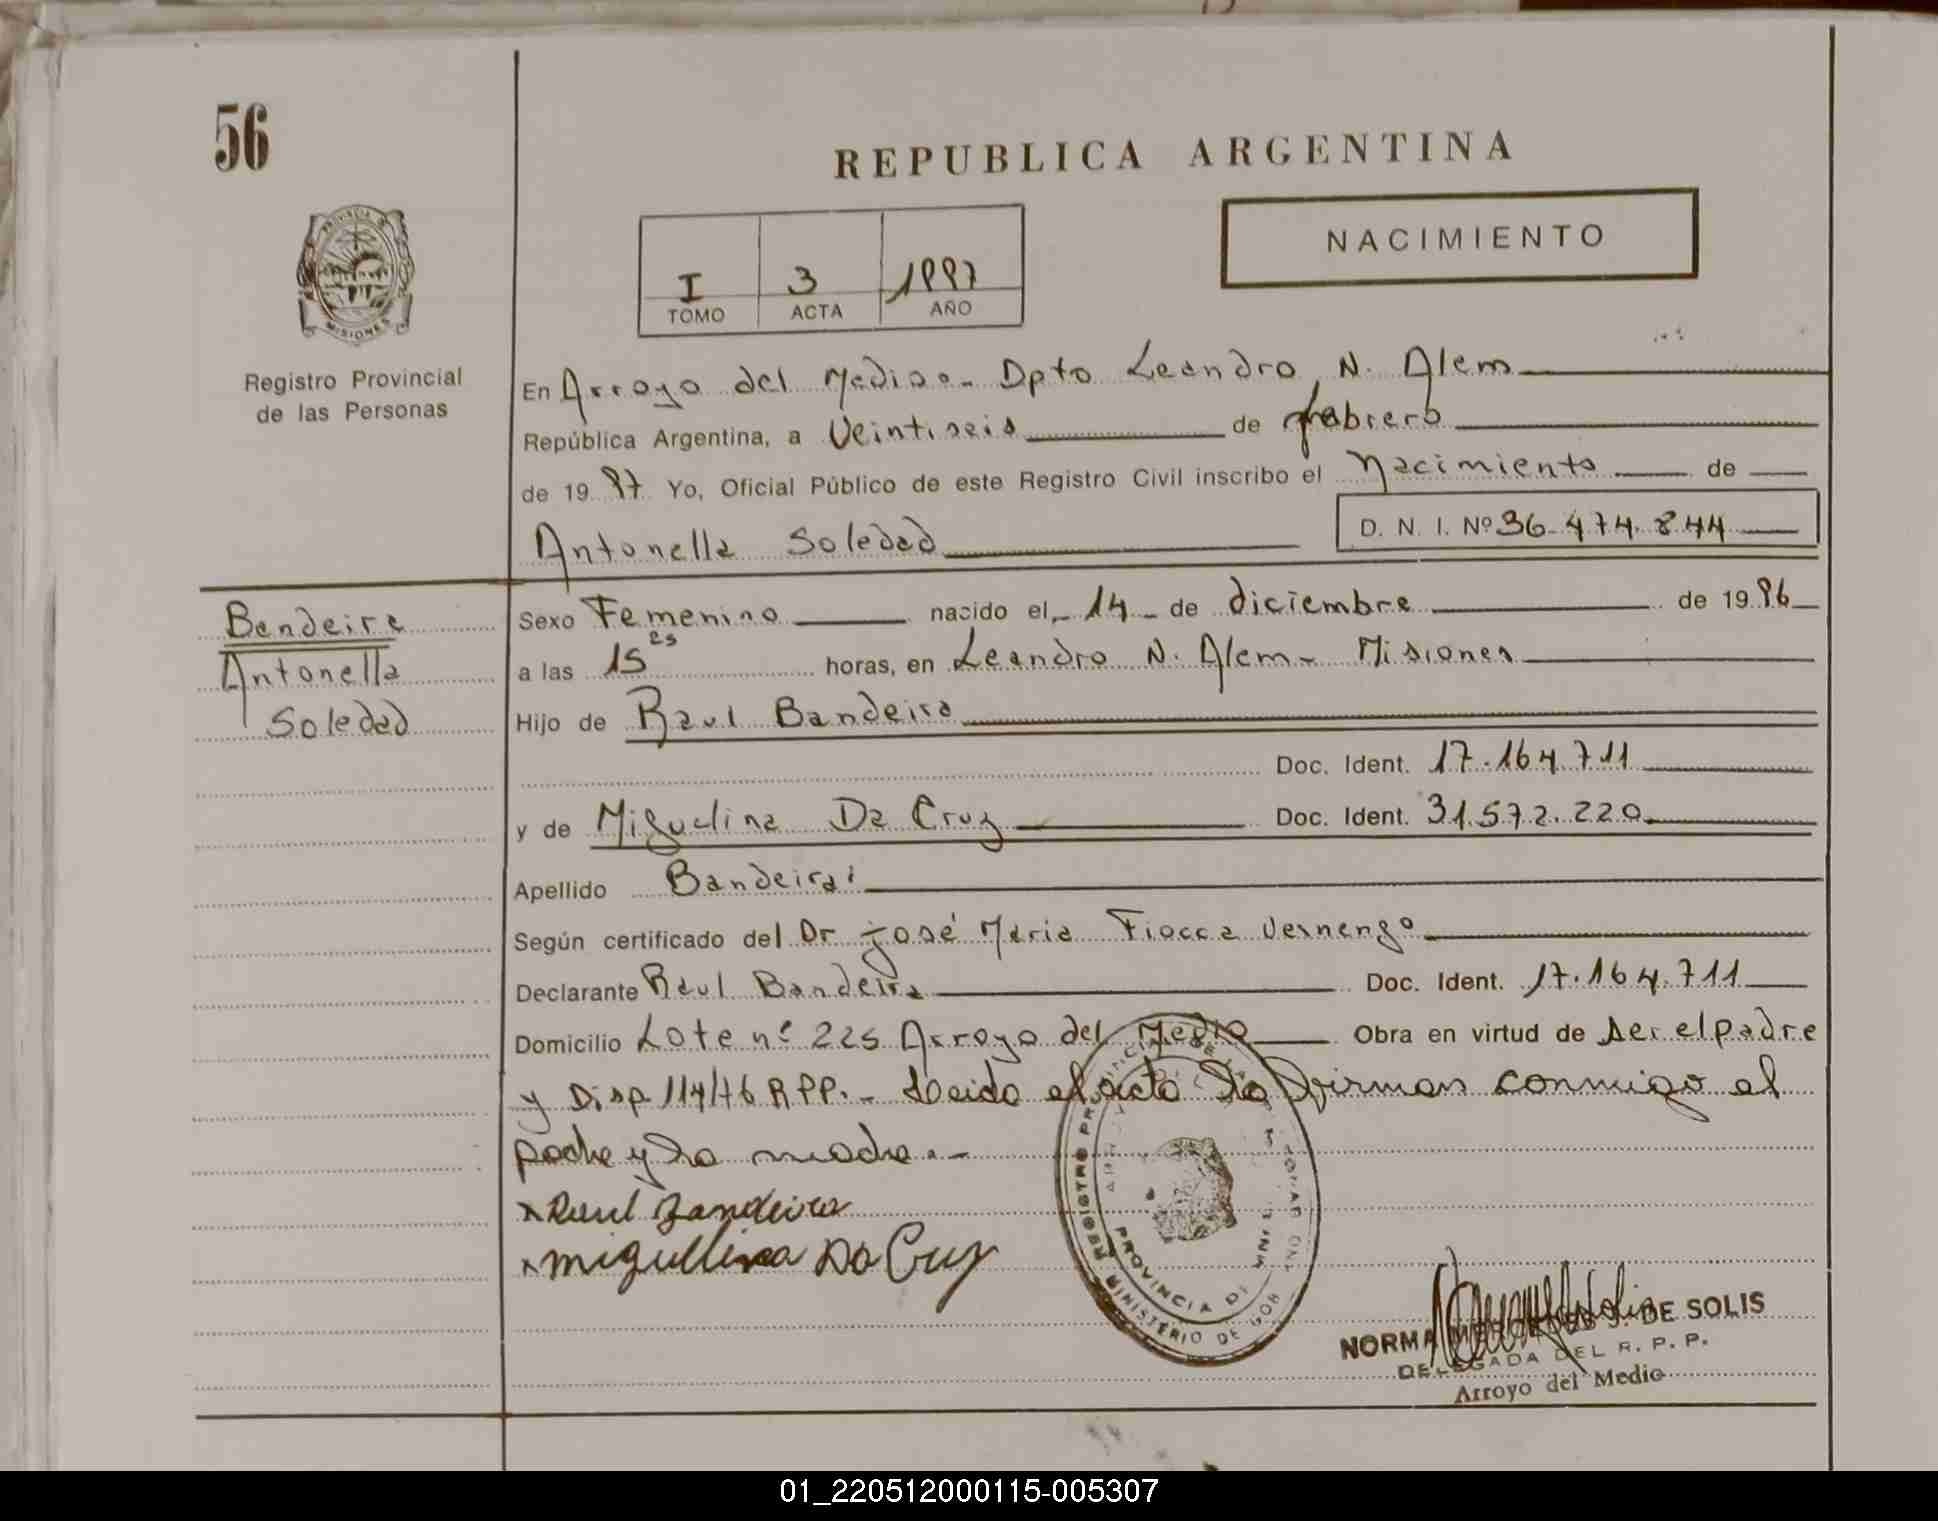 56
REPUBLICA ARGENTINA
NACIMIENTO
I 3 1987
TOMO ACTA AÑO
PROVINCIA DE MISIONES
Registro Provincial
de las Personas
En Arroyo del Medio.- Dpto Leandro N. Alem
República Argentina, a Veintiseis de febrero
de 1987 Yo, Oficial Público de este Registro Civil inscribo el Nacimiento de
Antonella Soledad D. N. I. Nº 36.474.844
Bandeira
Antonella
Soledad
Sexo Femenino nacido el 14 de diciembre de 1986
a las 15 25 horas, en Leandro N. Alem - Misiones
Hijo de Raul Bandeira
Doc. Ident. 17.164.711
y de Miguelina Da Cruz Doc. Ident. 31.572.220
Apellido Bandeira
Según certificado del Dr José Maria Fiocca Vernengo
Declarante Raul Bandeira Doc. Ident. 17.164.711
Domicilio Lote nº 225 Arroyo del Medio Obra en virtud de ser el padre
y Disp 114/76 RPP.- Leida el acta la firman conmigo el
padre y la madre.-
x Raul Bandeira
x miguelina Da Cruz
REGISTRO PROVINCIAL DE LAS PERSONAS
PROVINCIA DE
MINISTERIO DE GOB
NORMA DE SOLIS
DELEGADA DEL R. P. P.
Arroyo del Medio
01_220512000115-005307